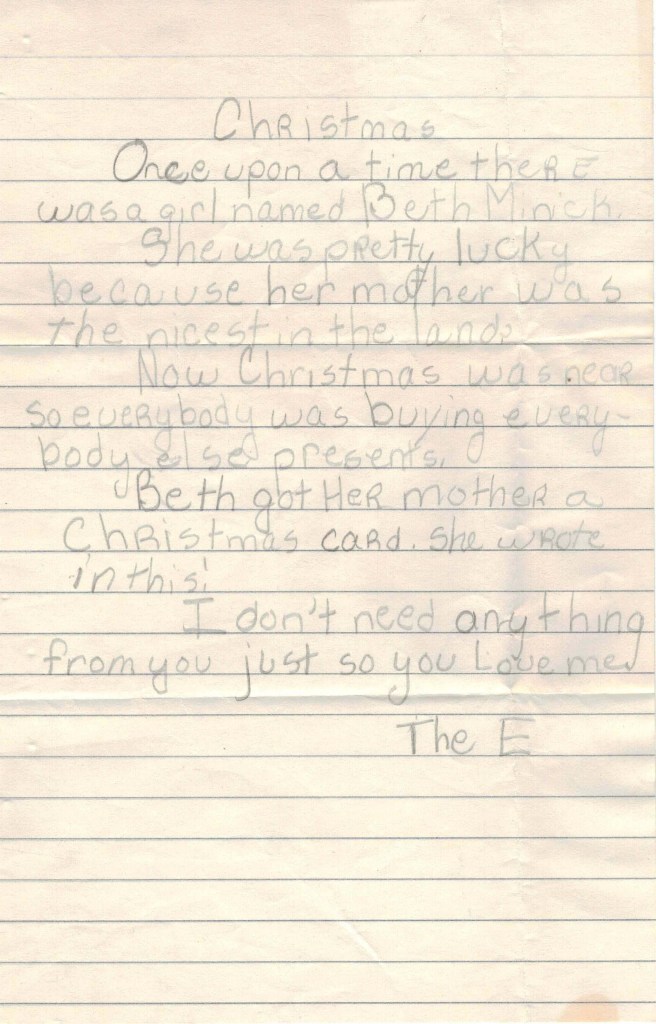 Christmas
Once upon a time there
was a girl named Beth Minick.
She was pretty lucky
because her mother was
the nicest in the land.
Now Christmas was near
so everybody was buying every-
body else presents.
Beth got Her mother a
Christmas card. She wrote
in this:
I don't need anything
from you just so you Love me.
The E